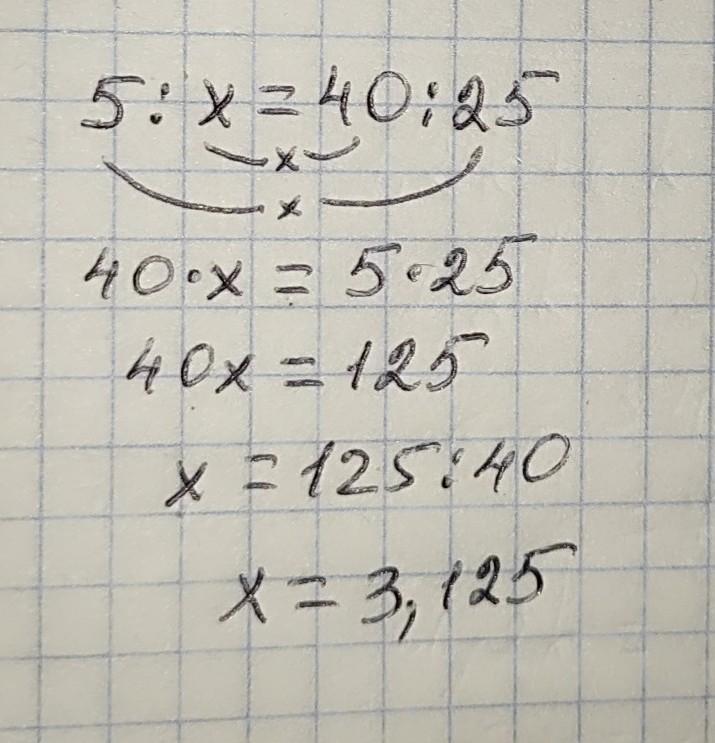 5 : x = 40 : 25
x
x
40 · x = 5 · 25
40x = 125
x = 125 : 40
x = 3,125